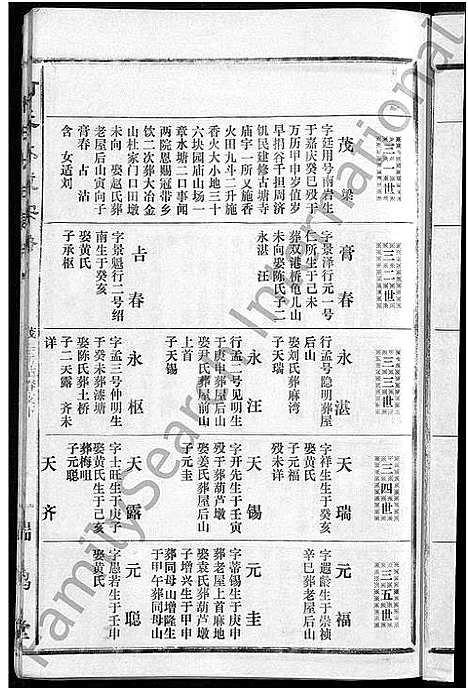 三一世
茂梁
字廷用号南岩生
于嘉庆癸巳殁于
万历甲申岁值岁
早捐谷千担周济
饥民建修古塘寺
庙宇一所又施香
火田九斗二升施
香火大小地三十
六块园庙山场一
章水塘二口事闻
两院恩赐冠带乡
饮二次葬大冶金
山杜家门口田墩
未向 娶赵氏葬
老屋后山寅向子
膏春 占 沾
含 女适刘
三二世
膏春
字景泽行元一号
仁所生于己未
葬双港桥龟儿山
未向娶陈氏子二
永湛 汪
占春
字景魁行二号绍
南生于癸亥
娶黄氏
子承枢
三三世
永湛
行孟号隐明葬屋
后山
娶刘氏葬麻湾
子天瑞
永汪
行孟二号见明生
于庚申葬屋后山
娶尹氏葬屋前山
上首
子天锡
永枢
字孟三号仲明生
于癸未葬漆塘
娶陈氏葬土桥
子二天露 齐未
详
三四世
天瑞
字祥生生于癸亥
娶黄氏
子元福
殁未详
天锡
字开先生于壬寅
殁于葬葫芦墩
娶姜氏葬屋后山
子元圭
天露
字士旺生于庚子
娶黄氏生于己亥
葬梅咀
子元聪
天齐
三五世
元福
字遐龄生于崇祯
辛巳葬老屋后山
元圭
字蒂锡生于庚申
葬老屋上首麻地
娶袁氏葬葫芦墩
子增兴生于甲申
葬同母山增隆生
于甲午葬同母山
元聪
字愚若生于壬申
娶黄氏
FamilySearch International